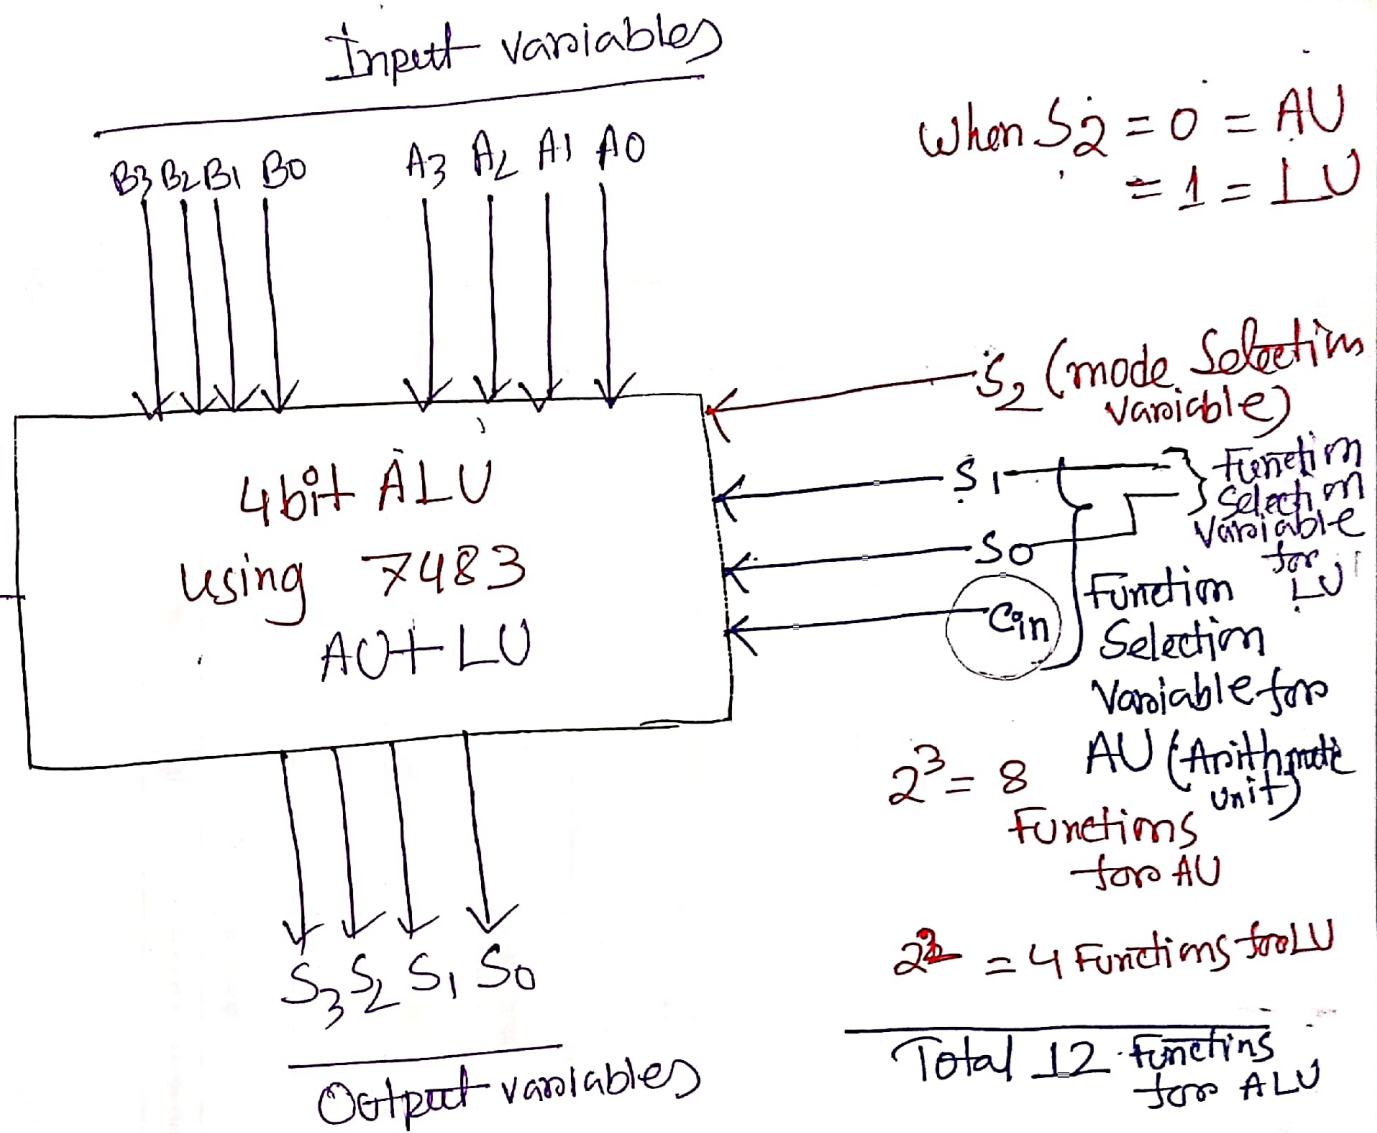 Input variables
B3 B2 B1 B0 A3 A2 A1 A0
When S2 = 0 = AU
= 1 = LU
S2 (mode Selection
variable)
S1
Function
Selection
Variable
for
LU
S0
Cin
Function
Selection
Variable for
AU (Arithmetic
unit)
4 bit ALU
using 7483
AU+LU
2³ = 8
Functions
for AU
2² = 4 Functions for LU
S3 S2 S1 S0
Total 12 Functins
for ALU
Output variables